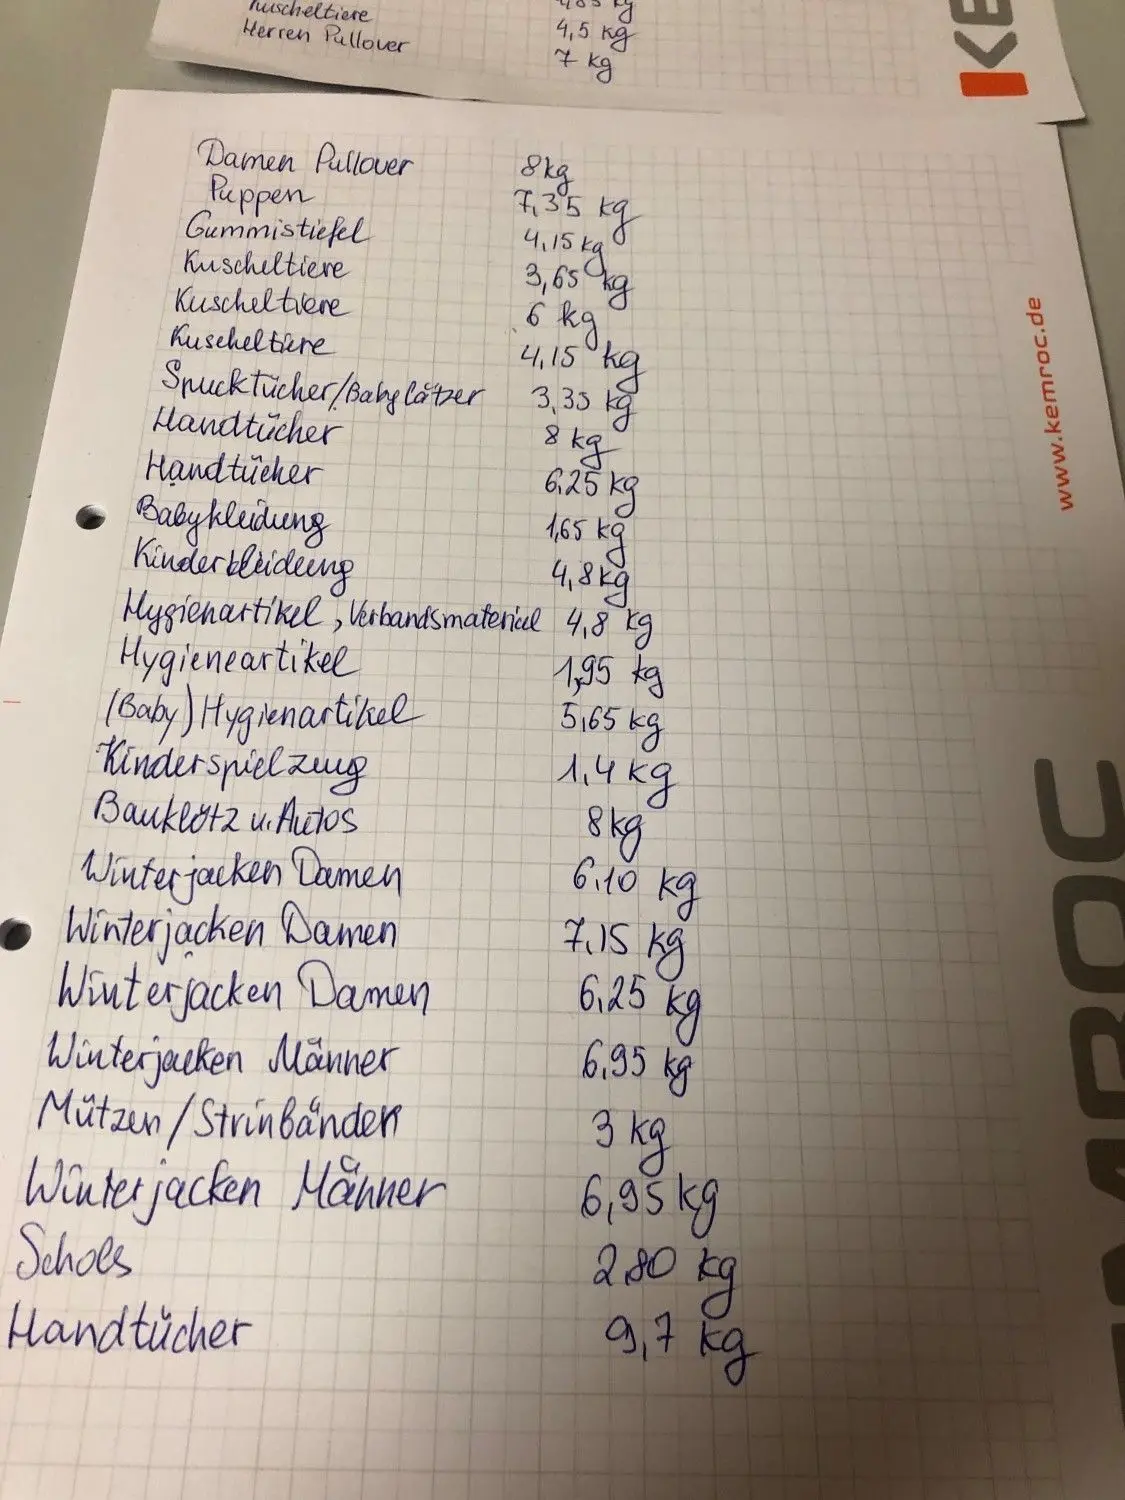 Kuscheltiere
Herren Pullover 4,5 kg
7 kg
KE
Damen Pullover 8kg
Puppen 7,35 kg
Gummistiefel 4,15 kg
Kuscheltiere 3,65 kg
Kuscheltiere 6 kg
Kuscheltiere 4,15 kg
Spucktücher/Babylätzer 3,35 kg
Handtücher 8 kg
Handtücher 6,25 kg
Babykleidung 1,65 kg
Kinderkleidung 4,8 kg
Hygienartikel, Verbandsmaterial 4,8 kg
Hygieneartikel 1,95 kg
(Baby) Hygienartikel 5,65 kg
Kinderspielzeug 1,4 kg
Bauklötz u. Autos 8 kg
Winterjacken Damen 6,10 kg
Winterjacken Damen 7,15 kg
Winterjacken Damen 6,25 kg
Winterjacken Männer 6,95 kg
Mützen/Strinbänder 3 kg
Winterjacken Männer 6,95 kg
Schols 2,80 kg
Handtücher 9,7 kg
www.kemroc.de
EMROC